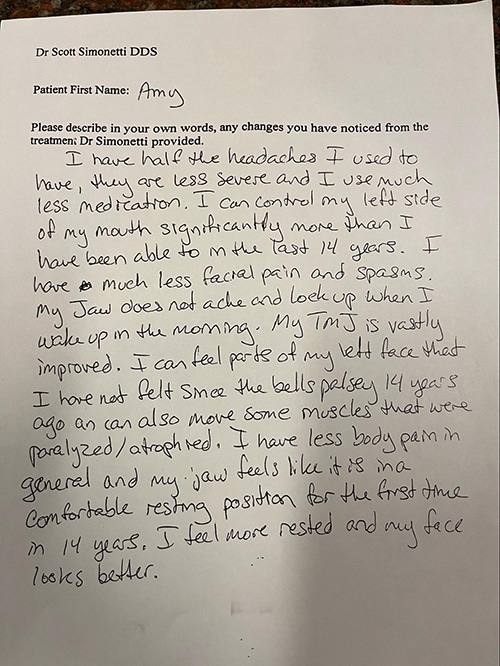 Dr Scott Simonetti DDS
Patient First Name: Amy
Please describe in your own words, any changes you have noticed from the
treatment Dr Simonetti provided.
I have half the headaches I used to
have, they are less severe and I use much
less medication. I can control my left side
of my mouth significantly more than I
have been able to in the last 14 years. I
have much less facial pain and spasms.
My Jaw does not ache and lock up when I
wake up in the morning. My TMJ is vastly
improved. I can feel parts of my left face that
I have not felt since the bells palsey 14 years
ago an can also move some muscles that were
paralyzed/atrophied. I have less body pain in
general and my jaw feels like it is in a
comfortable resting position for the first time
in 14 years. I feel more rested and my face
looks better.